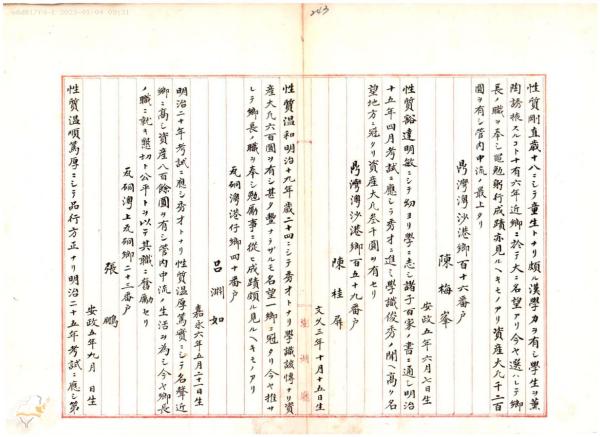 性質剛直歳十八ニシテ童生トナリ頗ル漢學力ヲ有シ學生ヲ薫
陶誘掖スルコト十有六年近鄉ニ於テ大ニ名望アリ今ヤ選ハレテ鄉
長ノ職ヲ奉シ黽勉躬行成蹟亦見ルヘキモノアリ資産大凡千二百
圓ヲ有シ管内中流ノ最上タリ
鼎灣灣沙港鄉百十六番戶
陳梅峯
安政五年六月七日生
性質豁達明敏ニシテ幼ヨリ學ニ志シ諸子百家ノ書ニ通シ明治
十五年四月考試ニ應シテ秀才ニ進ミ學識俊秀ノ聞ヘ高ク名
望地方ニ冠タリ資産大凡叁千圓ヲ有セリ
鼎灣灣沙港鄉百五十九番戶
陳桂屏
文久三年十月十五日生
性質温和明治十九年歳二十四ニシテ秀才トナリ學識該博ナリ資
産大凡六百圓ヲ有シ甚タ豊ナラザルモ名望一鄉ニ冠タリ今ヤ推サ
レテ鄉長ノ職ヲ奉シ勉厲事ニ從ヒ成蹟頗ル見ルヘキモノアリ
瓦硐灣港行鄉四十番戶
呂淵如
嘉永六年五月二十一日生
明治二十年考試ニ應シ秀才トナリ性質温厚篤實ニシテ名聲近
鄉ニ高シ資産八百餘圓ヲ有シ管内中流ノ生活ヲ為シ今ヤ鄉長
ノ職ニ就キ懇切公平トヲ以テ其職ニ奮勵セリ
瓦硐灣上瓦硐鄉二十三番戶
張鵬
安政五年九月 日生
性質温順篤厚ニシテ品行方正ナリ明治二十五年考試ニ應シ第
243